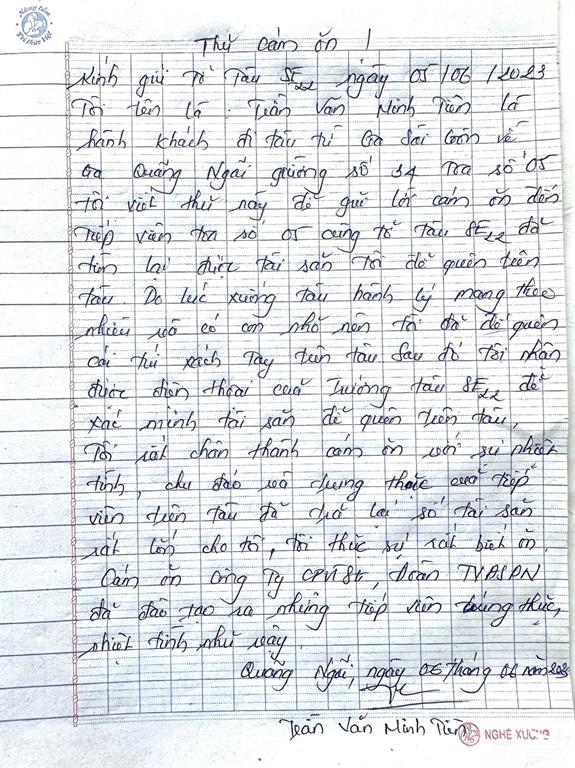 Nâng tầm
Tri thức Việt
Thư cám ơn !
Kính gửi tổ tàu SE22 ngày 05/06/2023
Tôi tên là : Trần Văn Minh Tiến là
hành khách đi tàu từ Ga Sài Gòn về
Ga Quãng Ngãi giường số 34 Toa số 05
tôi viết thư này để gửi lời cám ơn đến
Tiếp viên toa số 05 cùng tổ tàu SE22 đã
tìm lại được tài sản tôi để quên trên
tàu. Do lúc xuống tàu hành lý mang theo
nhiều và có con nhỏ nên tôi đã để quên
cái túi xách tay trên tàu sau đó tôi nhận
được điện thoại của Trưởng tàu SE22 để
xác minh tài sản để quên trên tàu,
Tôi rất chân thành cám ơn với sự nhiệt
tình, chu đáo và trung thực của tiếp
viên trên tàu đã trả lại số tài sản
rất lớn cho tôi, tôi thực sự rất biết ơn.
Cám ơn Công Ty CPVTĐS, Đoàn TVĐSPN
đã đào tạo ra những tiếp viên trung thực,
nhiệt tình như vậy.
Quãng Ngãi, ngày 06 tháng 06 năm 2023
Trần Văn Minh Tiến
NGHỀ XƯA